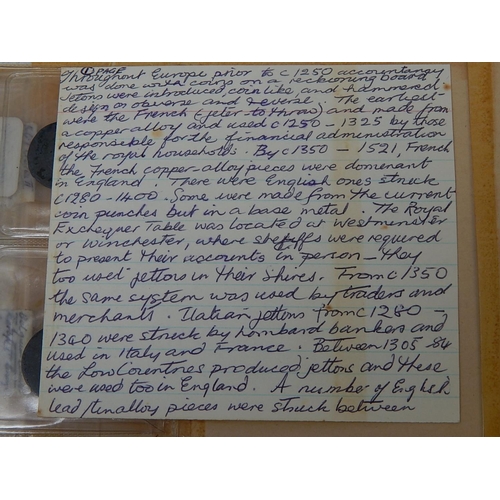 ① PAGE
Throughout Europe prior to c1250 accountancy
was done with coins on a reckoning board
Jettons were introduced, coin like, and hammered
design or obverse and reverse. The earliest
were the French (jeter - to throw) and made from
a copper alloy and used c1250 - 1325 by those
responsible for the financial administration
of the royal households. By c1350 - 1521, French
the French copper-alloy pieces were dominant
in England. There were English ones struck
c1280 - 1400. Some were made from the current
coin punches but in a base metal. The Royal
Exchequer Table was located at Westminster
or Winchester, where sheriffs were required
to present their accounts in person - they
too used jettons in their Shires. From c1350
the same system was used by traders and
merchants. Italian jettons from c1280 -
1340 were struck by Lombard bankers and
used in Italy and France. Between 1305 - 84
the Low Countries produced jettons and these
were used too in England. A number of English
lead/tin alloy pieces were struck between